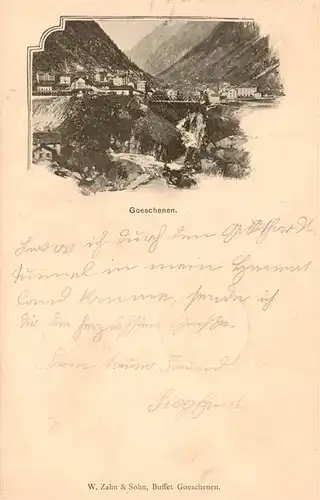 Goeschenen.
Bevor ich durch den Gotthardt
tunnel in mein Heimat
land komme, sende ich
Dir die herzlichsten Grüße.
Dein treuer Freund
Siegfried
W. Zahn & Sohn, Buffet Goeschenen.